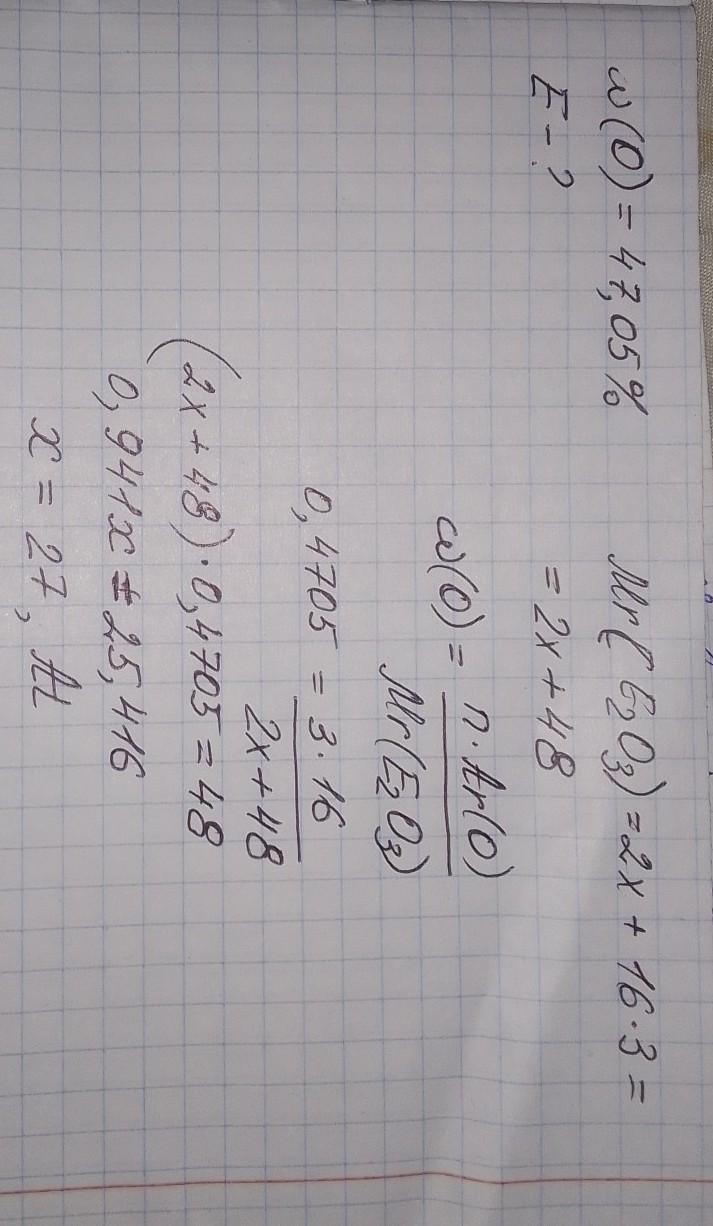 ω(O) = 47,05%
E - ?
Mr(E₂O₃) = 2x + 16·3 =
= 2x + 48
ω(O) = n·Ar(O)
Mr(E₂O₃)
0,4705 = 3·16
2x + 48
(2x + 48)·0,4705 = 48
0,941x = 25,416
x = 27, Al